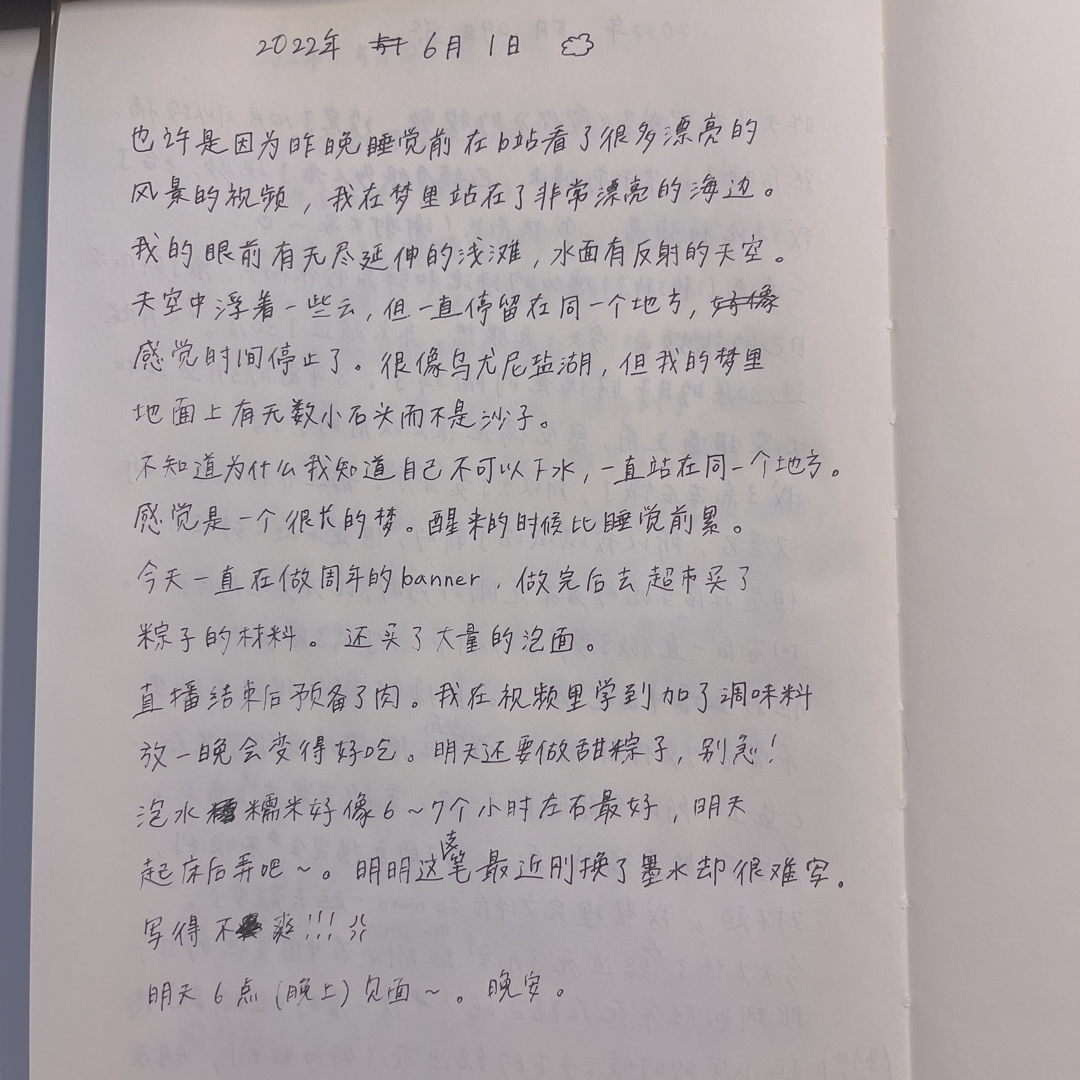 2022年 6月1日
也许是因为昨晚睡觉前在b站看了很多漂亮的
风景的视频，我在梦里站在了非常漂亮的海边。
我的眼前有无尽延伸的浅滩，水面有反射的天空。
天空中浮着一些云，但一直停留在同一个地方，好像
感觉时间停止了。很像乌尤尼盐湖，但我的梦里
地面上有无数小石头而不是沙子。
不知道为什么我知道自己不可以下水，一直站在同一个地方。
感觉是一个很长的梦。醒来的时候比睡觉前累。
今天一直在做周年的banner，做完后去超市买了
粽子的材料。还买了大量的泡面。
直播结束后预备了肉。我在视频里学到加了调味料
放一晚会变得好吃。明天还要做甜粽子，别急！
泡水糯米好像6～7个小时左右最好，明天
起床后弄吧～。明明这支笔最近刚换了墨水却很难写。
写得不爽!!!
明天6点(晚上)见面～。晚安。